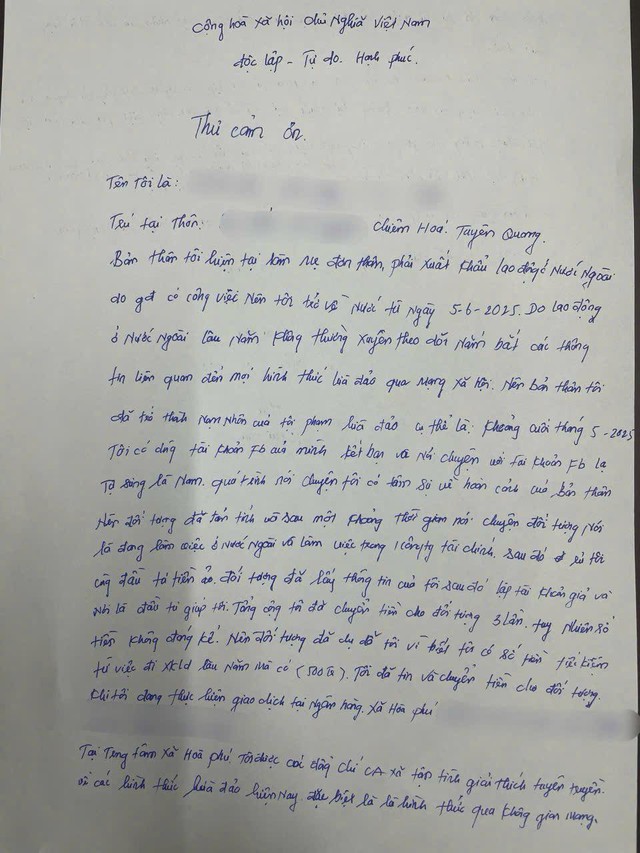 Cộng hoà xã hội chủ nghĩa Việt Nam
độc lập - Tự do. Hạnh phúc.
Thư cảm ơn.
Tên tôi là:
Trú tại thôn: Chiêm Hoá. Tuyên Quang.
Bản thân tôi hiện tại làm mẹ đơn thân, phải xuất khẩu lao động ở Nước Ngoài
do gđ có công việc Nên tôi trở về Nước từ ngày 5-6-2025. Do lao động
ở Nước Ngoài lâu Năm không thường xuyên theo dõi Nắm bắt các thông
tin liên quan đến mọi hình thức lừa đảo qua mạng xã hội. Nên bản thân tôi
đã trở thành Nạm Nhân của tội phạm lừa đảo cụ thể là: Khoảng cuối tháng 5-2025
Tôi có dùng tài khoản Fb của mình kết bạn và Nói chuyện với tài khoản Fb lạ
Tự xưng là Nam. quá trình nói chuyện tôi có tâm sự về hoàn cảnh của bản thân
Nên đối tượng đã tán tỉnh và sau một khoảng thời gian nói chuyện đối tượng Nói
là đang làm việc ở Nước Ngoài và làm việc trong 1 công ty tài chính. sau đó rủ tôi
cùng đầu tư tiền ảo. đối tượng đã lấy thông tin của tôi sau đó lập tài khoản giả và
Nói là đầu tư giúp tôi. Tổng cộng tôi đã chuyển tiền cho đối tượng 3 lần. tuy Nhiên số
tiền không đáng kể. Nên đối tượng đã dụ dỗ tôi vì biết tôi có số tiền tiết kiệm
từ việc đi xkld lâu Năm mà có (500tr). Tôi đã tin và chuyển tiền cho đối tượng.
Khi tôi đang thực hiện giao dịch tại Ngân hàng. Xã Hòa phú
Tại Trung tâm xã Hoà phú, Tôi được các đồng chí CA xã tận tình giải thích tuyên truyền.
về các hình thức lừa đảo hiện Nay. đặc biệt là là hình thức qua không gian mạng.